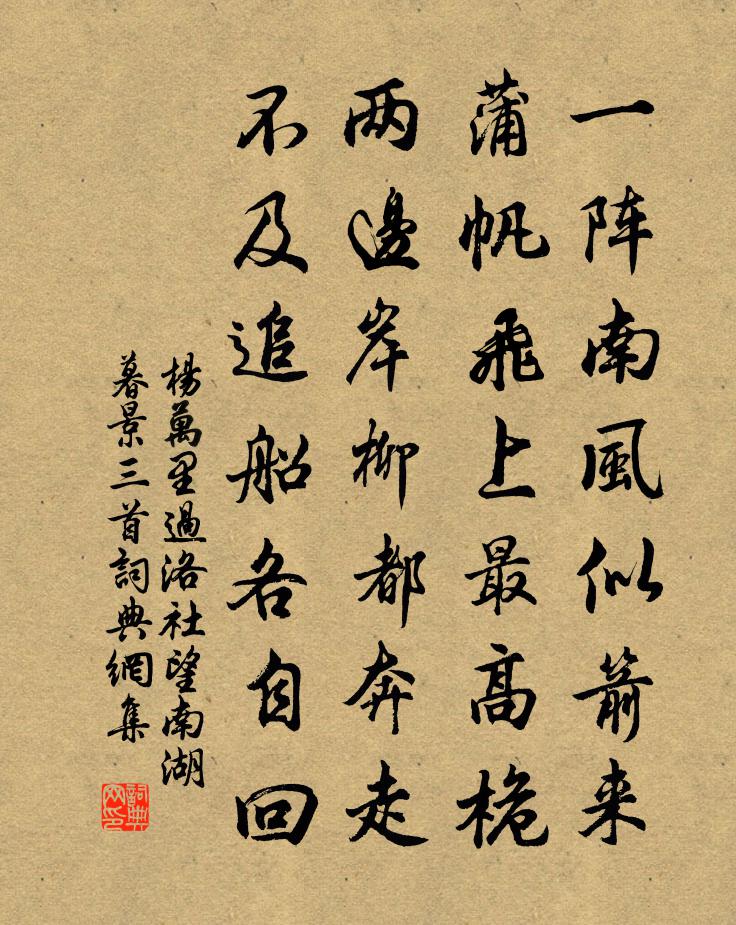 一阵南風似箭来
蒲帆飛上最高桅
两邊岸柳都奔走
不及追船各自回
楊萬里過洛社望南湖
暮景三首詞典網集
詞典网印